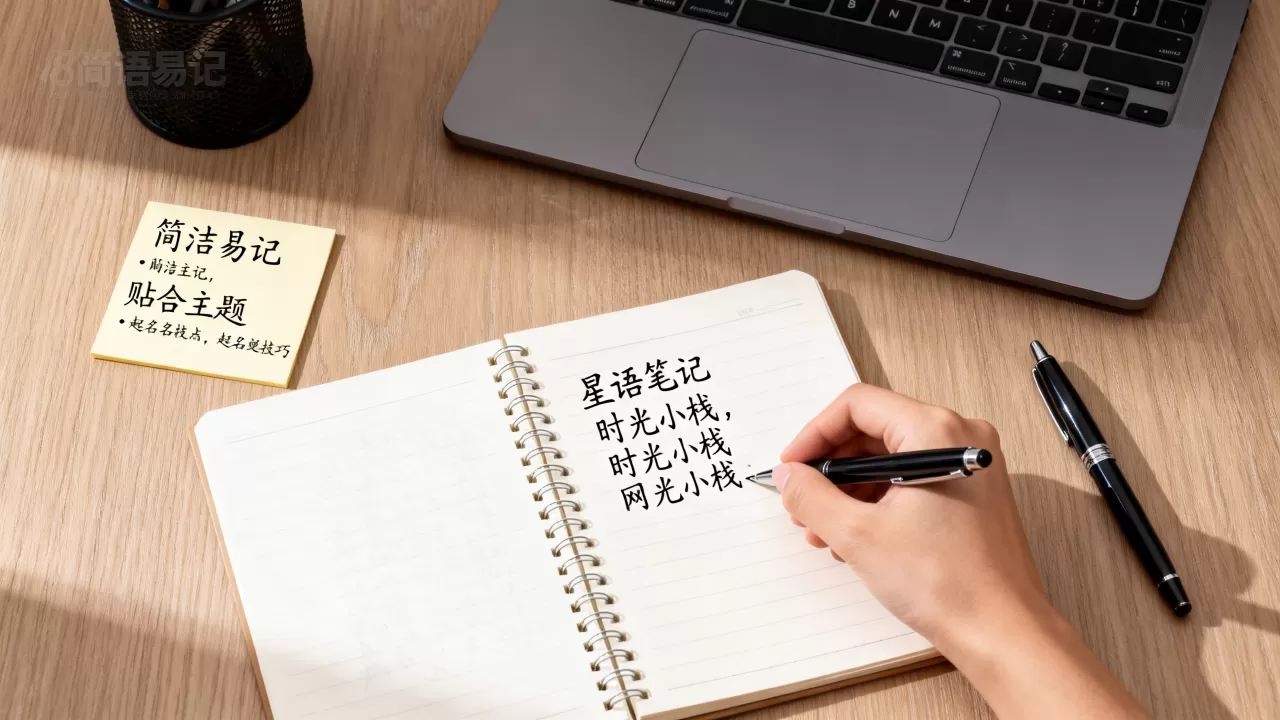 简语易记
简洁易记
• 简洁主记,
贴合主题
• 起名名技点，起名更技巧
星语笔记
时光小栈,
时光小栈
网光小栈
B
N
M